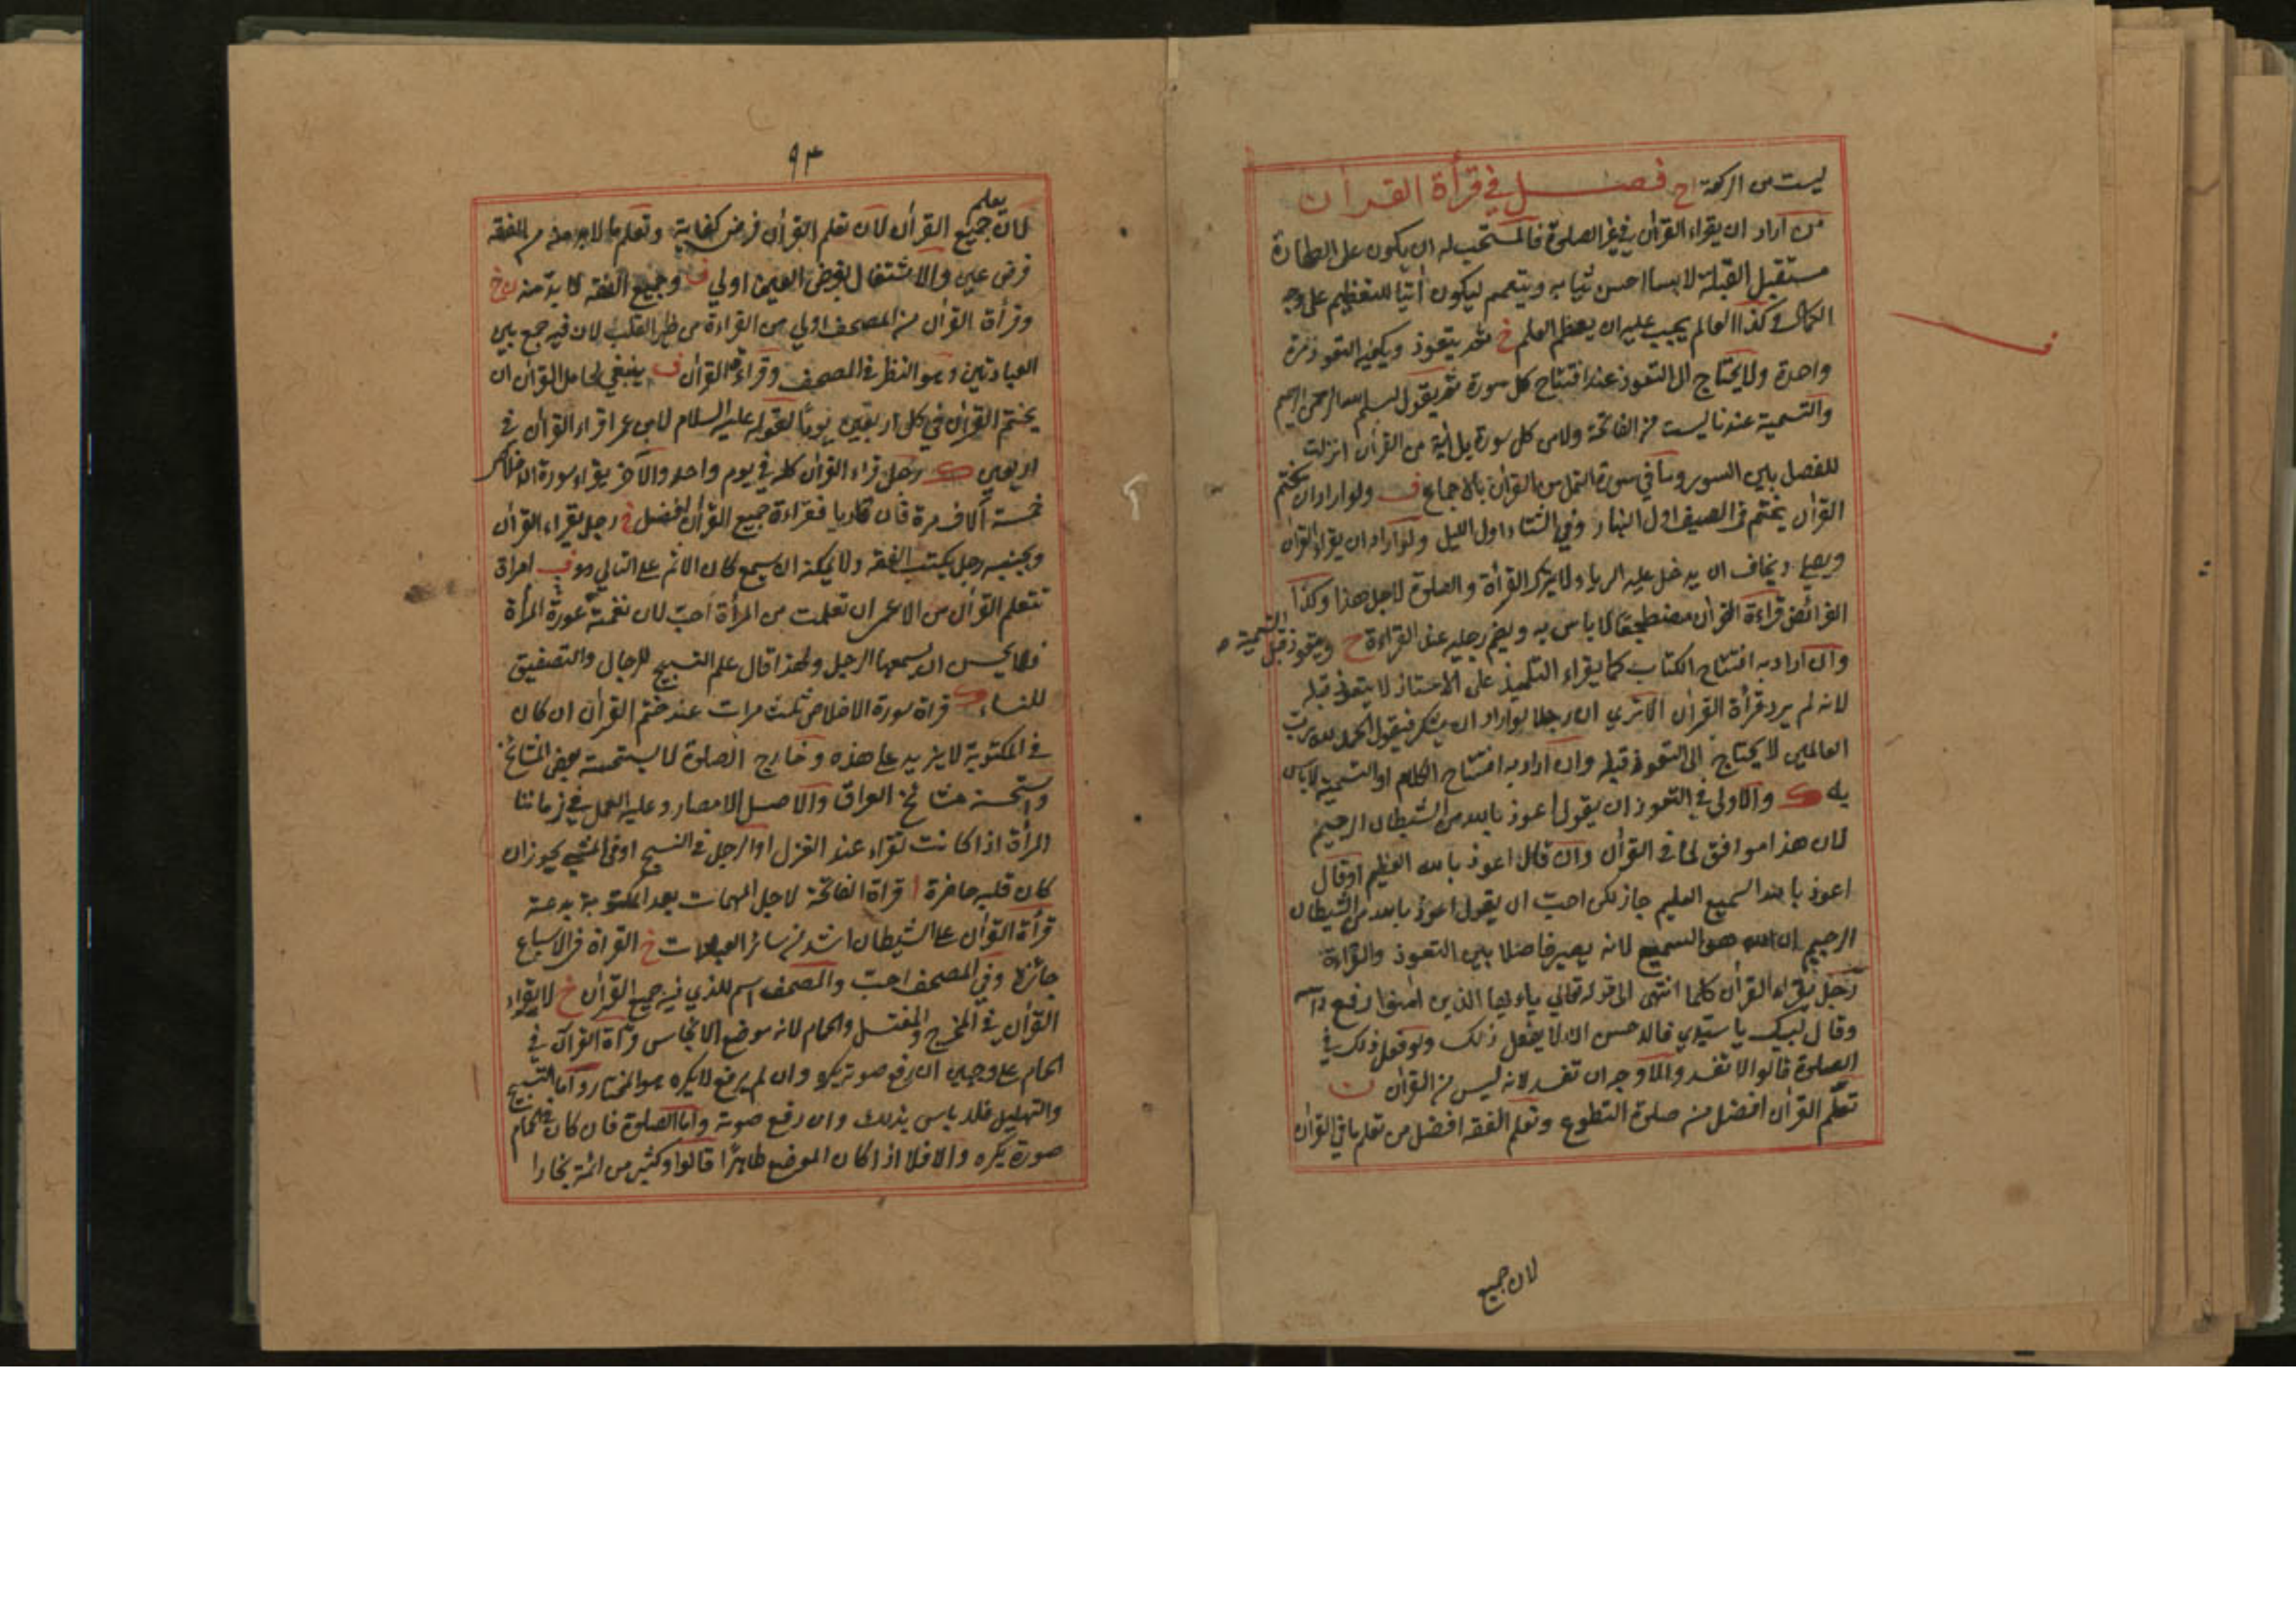 ليست من الركعة ح فصل في قرأة القران
من اراد ان يقراء القرأن في غير الصلوة فالمستحب له ان يكون على الطهارة
مستقبل القبلة لابسا احسن ثيابه ويتعمم ليكون أتيا للتعظيم على وجه
الكمال وكذا العالم يجب عليه ان يعظم العلم خ ثم يتعوذ ويكفيه التعوذ مرة
واحدة ولا يحتاج الى التعوذ عند افتتاح كل سورة ثم يقول بسلم الله الرحمن الرحيم
والتسمية عندنا ليست من الفاتحة ولا من كل سورة بل أية من القرأن انزلت
للفصل بين السور وما في سورة النمل من القرأن بالاجماع ف ولو اراد ان يختم
القرأن يختم في الصيف اول النهار وفي الشتاء اول الليل ولو اراد ان يقراء القرأن
ويصلي ويخاف ان يدخل عليه الرياء ولا يترك القرأة والصلوة لاجل هذا وكذا
الفرائض قراءة القرأن مضطجعا لا باس به ويضم رجليه عند القراءة ح ويتعوذ قبل التسمية
وان اراد به افتتاح الكتاب كما يقراء التلميذ على الاستاذ لا يتعوذ قبله
لانه لم يرد قرأة القرأن الا ترى ان رجلا لو اراد ان يشكر فيقول الحمد لله رب
العالمين لا يحتاج الى التعوذ قبله وان اراد به افتتاح الكلام او التسمية لا باس
به والاولى في التعوذ ان يقول اعوذ بالله من الشيطان الرجيم
لان هذا موافق لما في القرأن وان قال اعوذ بالله العظيم اوقال
اعوذ بالله السميع العليم جاز لكن احب ان يقول اعوذ بالله من الشيطان
الرجيم ان الله هو السميع لانه يصير فاصلا بين التعوذ والقراءة
رجل يقراء القرأن كلما انتهى الى قوله تعالى ياء يها الذين امنوا رفع رأسه
وقال لبيك يا سيدي فالاحسن ان لا يفعل ذلك ولو فعل ذلك في
الصلوة قالوا لا تفسد والاوجه ان تفسد لانه ليس من القرأن
تعلم القرأن افضل من صلوة التطوع وتعلم الفقه افضل من تعلم باقي القرأن
لان جميع
٩٣
لان تعلم جميع القرأن لان تعلم القرأن فرض كفاية وتعلم ما لابد منه من الفقه
فرض عين والاشتغال بفرض العين اولي ف وجميع الفقه لا بد منه
وقرأة القرأن من المصحف اولي من القراءة من ظهر القلب لان فيه جمع بين
العبادتين وهو النظر في المصحف وقراءة القرأن ف ينبغي لحامل القرأن ان
يختم القرأن في كل اربعين يوما لقوله عليه السلام لابن عمر اقراء القرأن في
اربعين رجل قراء القرأن كله في يوم واحد والأخر يقراء سورة الاخلاص
خمسة ألاف مرة فان قاريا فقراءة جميع القرأن افضل رجل يقراء القرأن
وبجنبه رجل يكتب الفقه ولا يمكنه ان يسمع كان الاثم على التالي امراة
تتعلم القرأن من الاعمى ان تعلمت من المرأة احب لان نغمة عورة المرأة
فلا يحسن ان يسمعها الرجل ولهذا قال علم التسبيح للرجال والتصفيق
للنساء قراة سورة الاخلاص ثلث مرات عند ختم القرأن ان كان
في المكتوبة لا يزيد على هذه وخارج الصلوة لا يستحسنه بعض المشائخ
واستحسنه مشائخ العراق والاصل الامصار وعليه العمل في زماننا
المرأة اذا كانت تقراء عند الغزل او الرجل في النسج او في المشي يجوز ان
كان قلبه حاضرة قراة الفاتحة لاجل المهمات بعد المكتوبة بدعة
قرأة القرأن على الشيطان اشد من سائر العبادات خ القراة في الاسباع
جائزة وفي المصحف احب والمصحف اسم للذي فيه جميع القرأن خ لا يقراء
القرأن في المخرج والمغتسل والحمام لانه موضع الانجاس وقرأة القرأن في
الحمام على وجهين ان رفع صوته يكره وان لم يرفع لا يكره هو المختار واما التسبيح
والتهليل فلا باس بذلك وان رفع صوته واما الصلوة فان كان في الحمام
صورة يكره والا فلا اذا كان الموضع طاهرا قالوا وكثير من ائمة بخارا